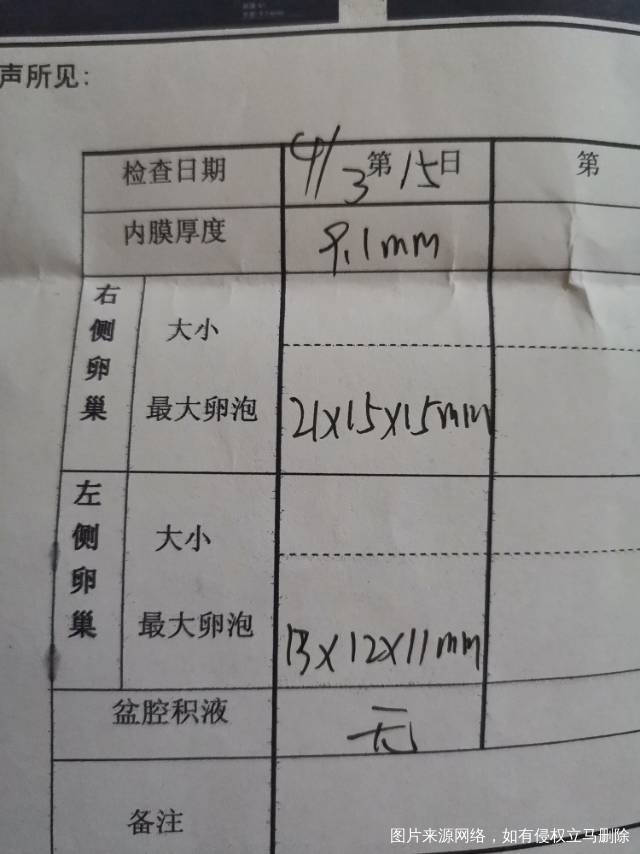 声所见:
检查日期 4/3 第15日 第
内膜厚度 9.1mm
右侧卵巢
大小
最大卵泡 21×15×15mm
左侧卵巢
大小
最大卵泡 13×12×11mm
盆腔积液 无
备注
图片来源网络，如有侵权立马删除